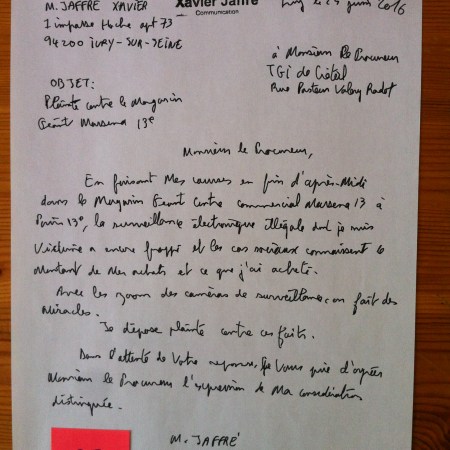 M. JAFFRÉ XAVIER
Xavier Jaffré
Communication
1 impasse Hoche apt 73
94200 IVRY-SUR-SEINE
Ivry le 24 juin 2016
à Monsieur le Procureur
TGI de Créteil
Rue Pasteur Valery Radot
OBJET:
Plainte contre le Magasin
Géant Massena 13e
Monsieur le Procureur,
En faisant Mes courses en fin d'après-Midi
dans le Magasin Géant Centre commercial Massena 13 à
Paris 13e, la surveillance électronique illégale dont je suis
Victime a encore frappé et les cas sociaux connaissent le
Montant de Mes achats et ce que j'ai acheté.
Avec les zoom des caméras de surveillance, on fait des
Miracles.
Je dépose plainte contre ces faits.
Dans l'attente de Votre réponse, je Vous prie d'agréer
Monsieur le Procureur l'expression de Ma considération
distinguée.
M. JAFFRÉ